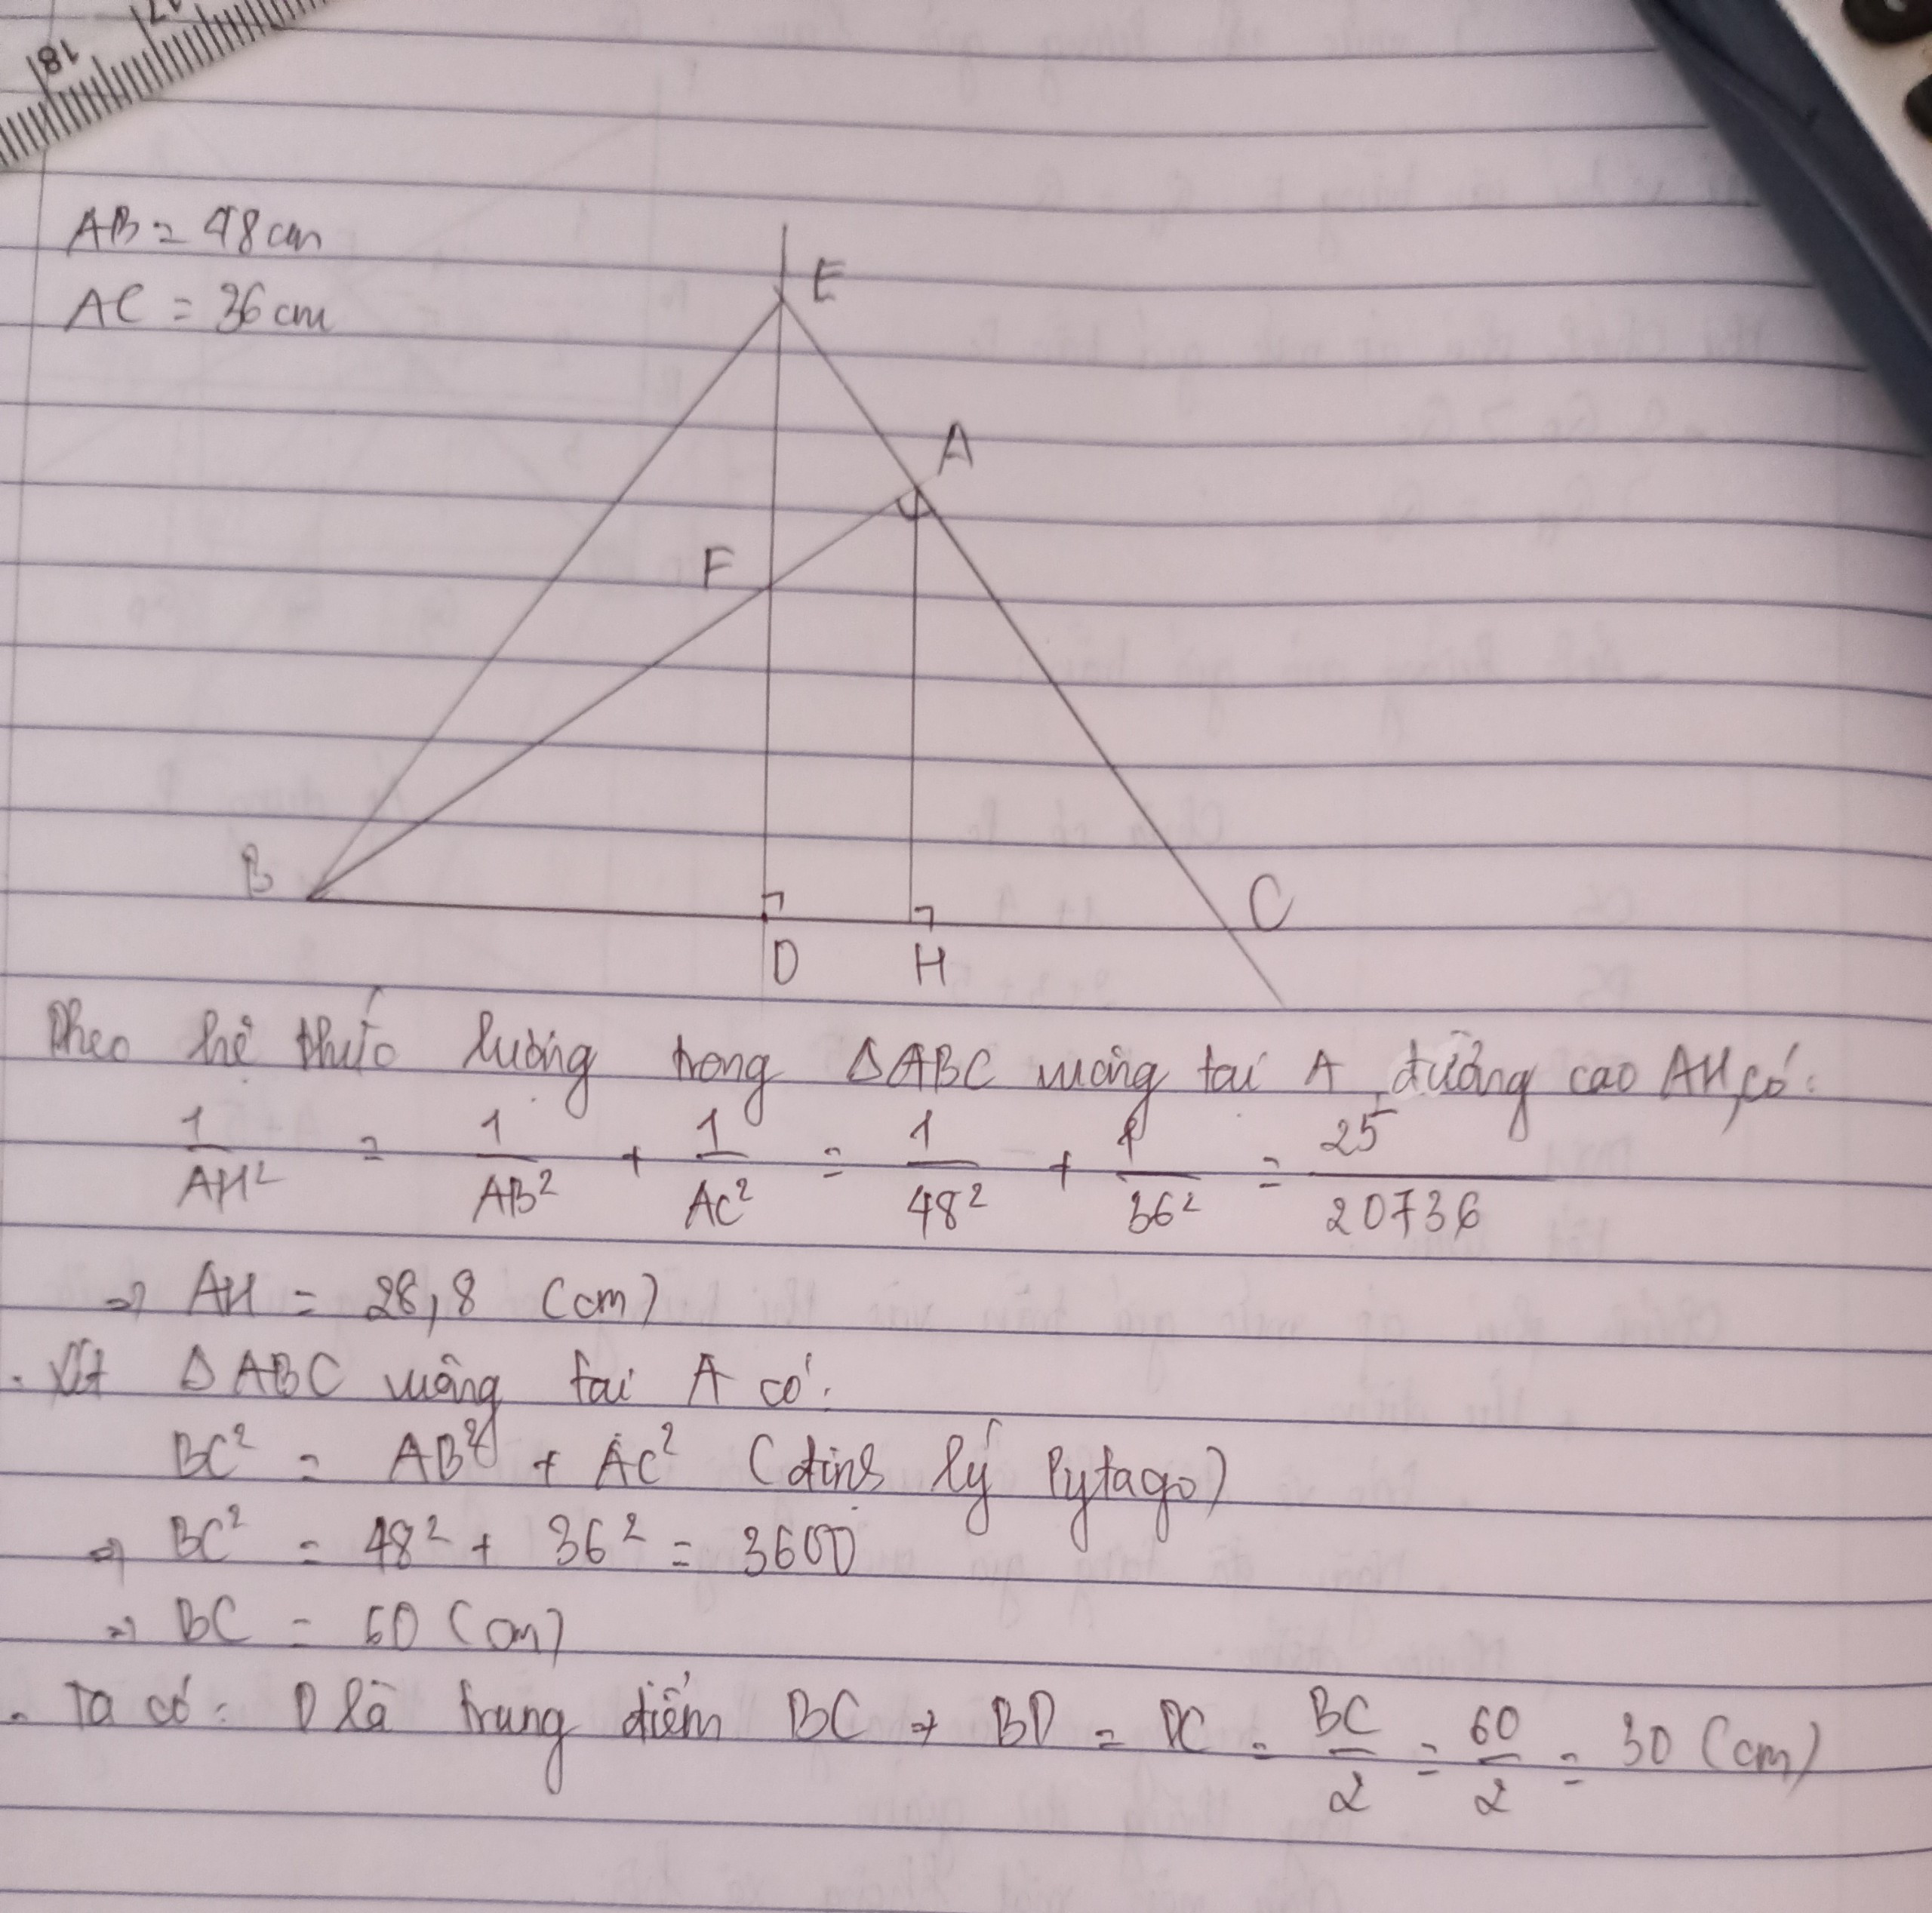 18
17
AB = 48cm
AC = 36cm
E
A
F
B
C
D
H
Theo hệ thức lượng trong ΔABC vuông tại A, đường cao AH, có:
1/AH² = 1/AB² + 1/AC² = 1/48² + 1/36² = 25/20736
⇒ AH = 28,8 (cm)
. Xét ΔABC vuông tại A có:
BC² = AB² + AC² (định lý Pytago)
⇒ BC² = 48² + 36² = 3600
⇒ BC = 60 (cm)
. Ta có: D là trung điểm BC ⇒ BD = DC = BC/2 = 60/2 = 30 (cm)